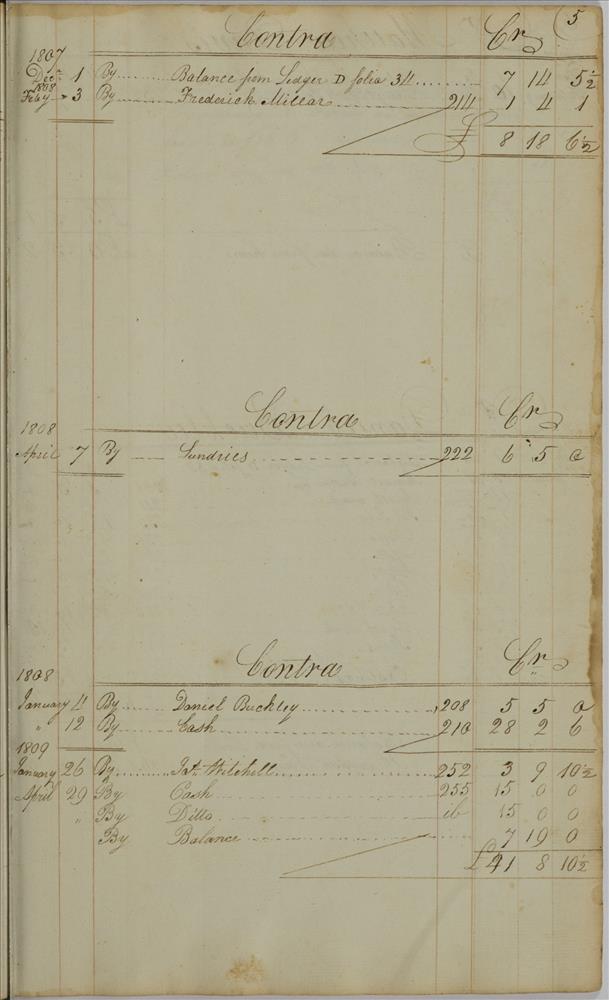 5
Contra Cr
1807
Decr 1 By Balance from Ledger D folio 34 7 14 5½
1808
Feby 3 By Frederick Millar 214 1 4 1
£ 8 18 6½
Contra Cr
1808
April 7 By Sundries 222 6 5 0
Contra Cr
1808
January 4 By Daniel Buckley 208 5 5 0
" 12 By Cash 210 28 2 6
1809
January 26 By Jas Witchell 252 3 9 10½
April 29 By Cash 255 15 0 0
" By Ditto ib 15 0 0
By Balance 7 19 0
£41 8 10½